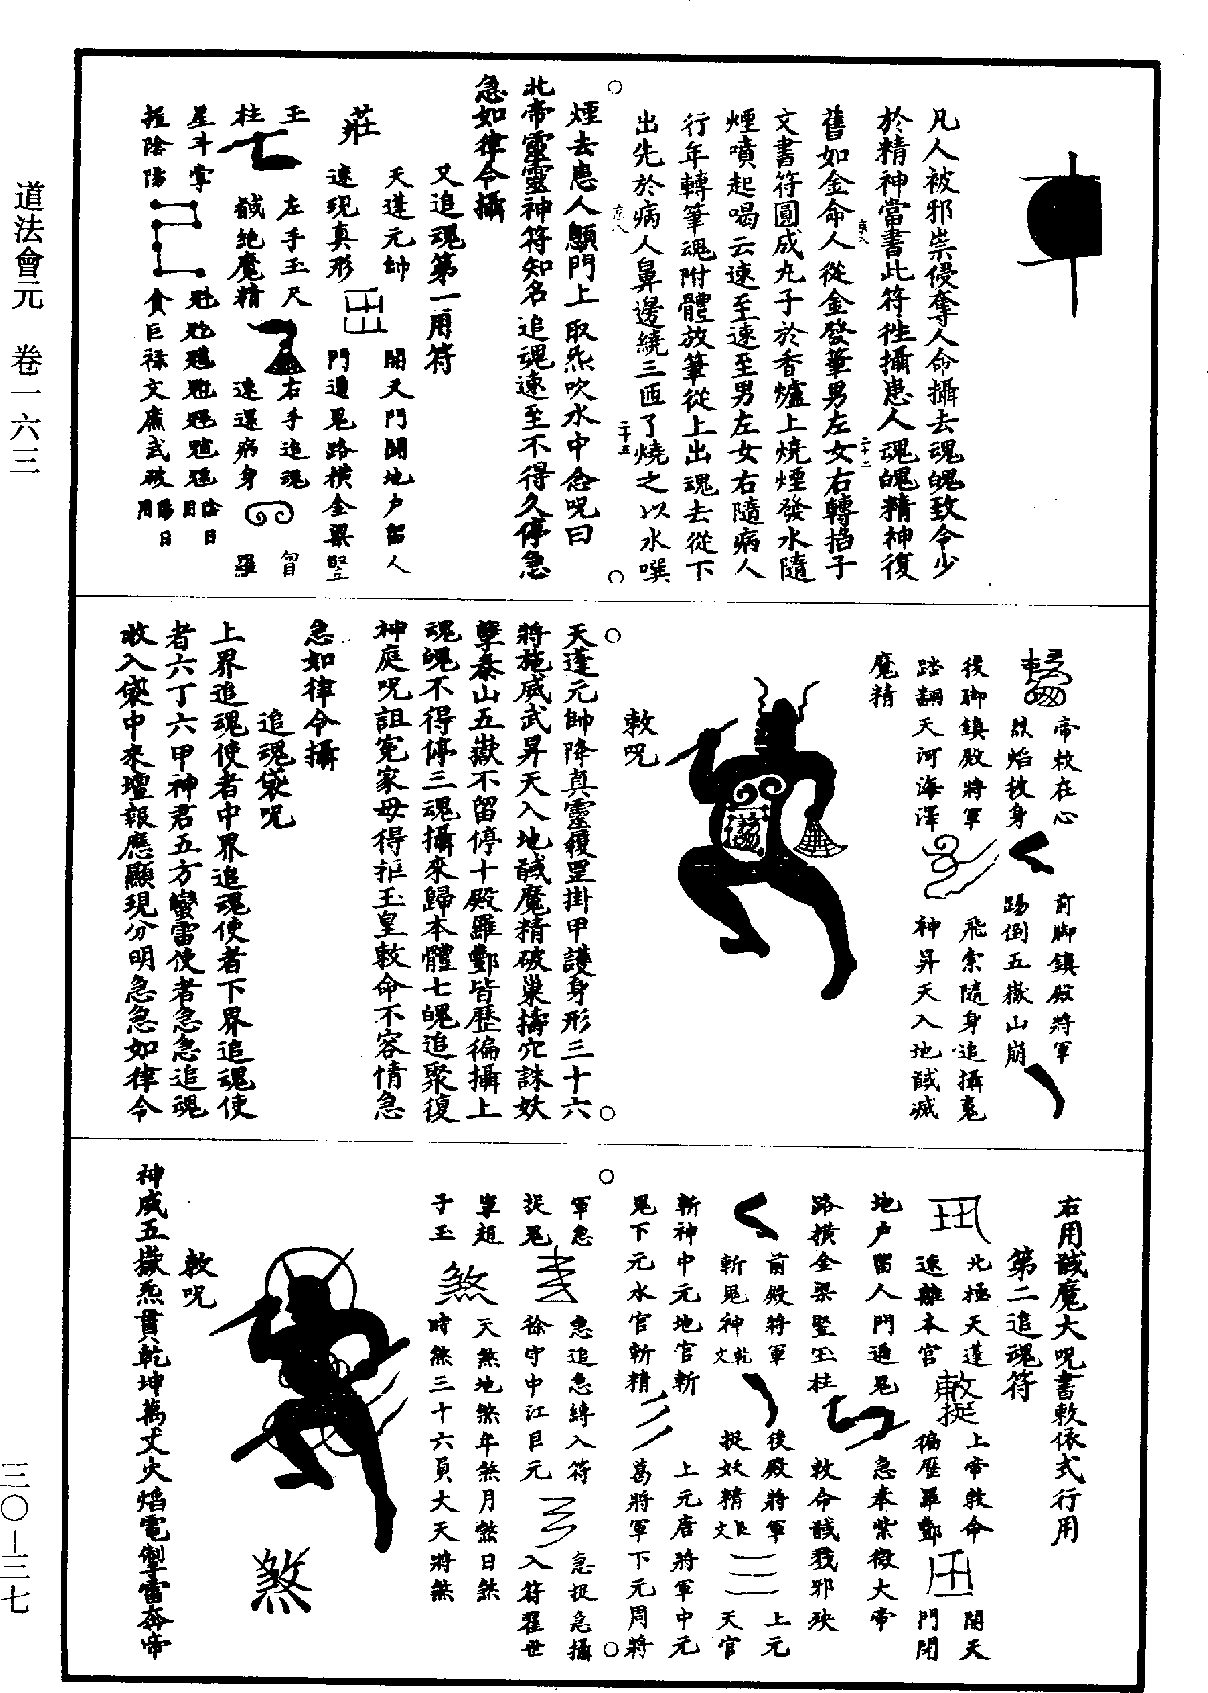 道法會元　卷一六三
凡人被邪祟侵奪人命攝去魂魄致令少
於精神當書此符徃攝患人魂魄精神復
舊如金命人從金發筆男左女右轉掐子
文書符圓成丸子於香爐上燒煙發水隨
煙噴起喝云速至速至男左女右隨病人
行年轉筆魂附體放筆從上出魂去從下
出先於病人鼻邊繞三匝了燒之以水噀
煙去患人顖門上取炁吹水中念呪曰
北帝靈靈神符知名追魂速至不得久停急
急如律令攝
又追魂第一用符
天蓬元帥
開天門閉地戶留人
速現真形
門遏鬼路橫金梁竪
玉
左手玉尺
右手追魂
柱
馘絶魔精
速還病身
羅
星斗掌
魁𩲃𩵄䰢魓䰨魒
握陰陽
貪巨祿文廉武破
帝敕在心
前脚鎮殿將軍
烈焰敕身
踢倒五嶽山崩
後脚鎮殿將軍
飛索隨身追攝鬼
踏翻天河海澤
神昇天入地馘滅
魔精
敕呪
天蓬元帥降真靈覆罡掛甲護身形三十六
將施威武昇天入地馘魔精破巢擣穴誅妖
孽泰山五嶽不留停十殿羅酆皆歷徧攝上
魂魄不得停三魂攝來歸本體七魄追聚復
神庭呪詛寃家毋得拒玉皇敕命不容情急
急如律令攝
追魂袋呪
上界追魂使者中界追魂使者下界追魂使
者六丁六甲神君五方蠻雷使者急急追魂
收入袋中來壇報應顯現分明急急如律令
右用馘魔大呪書敕依式行用
第二追魂符
北極天蓬
上帝敕命
開天
速離本宮
徧歷羅酆
門閉
地戶留人門遏鬼
急奉紫微大帝
路橫金梁竪玉柱
敕命馘我邪殃
前殿將軍
後殿將軍
上元
斬鬼神
乾文
捉妖精
艮文
天官
斬神中元地官斬
上元唐將軍中元
鬼下元水官斬精
葛將軍下元周將
軍急
急追急縛入符
急捉急攝
捉鬼
徐守中江巨元
入符翟世
掌趙
天煞地煞年煞月煞日煞
子玉
時煞三十六員大天將煞
煞
敕呪
神威五嶽炁貫乾坤萬丈火焰電掣雷奔帝
煞
三〇—三七